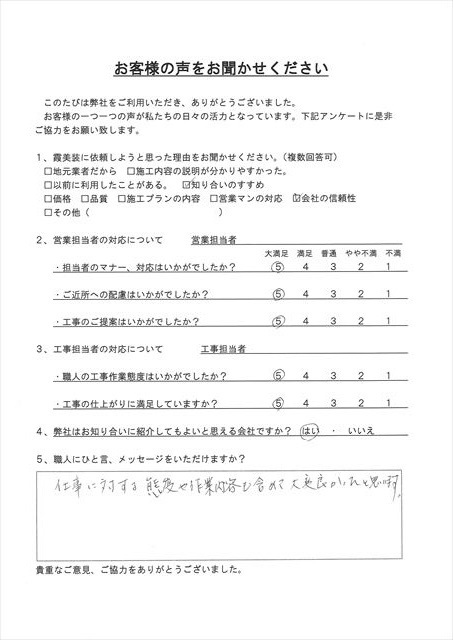 お客様の声をお聞かせください
このたびは弊社をご利用いただき、ありがとうございました。
お客様の一つ一つの声が私たちの日々の活力となっています。下記アンケートに是非
ご協力をお願い致します。
1、霞美装に依頼しようと思った理由をお聞かせください。（複数回答可）
□地元業者だから □施工内容の説明が分かりやすかった。
□以前に利用したことがある。 ☑知り合いのすすめ
□価格 □品質 □施工プランの内容 □営業マンの対応 ☑会社の信頼性
□その他（ ）
2、営業担当者の対応について 営業担当者
大満足 満足 普通 やや不満 不満
・担当者のマナー、対応はいかがでしたか？ ⑤ 4 3 2 1
・ご近所への配慮はいかがでしたか？ ⑤ 4 3 2 1
・工事のご提案はいかがでしたか？ ⑤ 4 3 2 1
3、工事担当者の対応について 工事担当者
・職人の工事作業態度はいかがでしたか？ ⑤ 4 3 2 1
・工事の仕上がりに満足していますか？ ⑤ 4 3 2 1
4、弊社はお知り合いに紹介してもよいと思える会社ですか？ はい ・ いいえ
5、職人にひと言、メッセージをいただけますか？
仕事に対する態度や作業内容も含めて大変良かったと思います。
貴重なご意見、ご協力をありがとうございました。